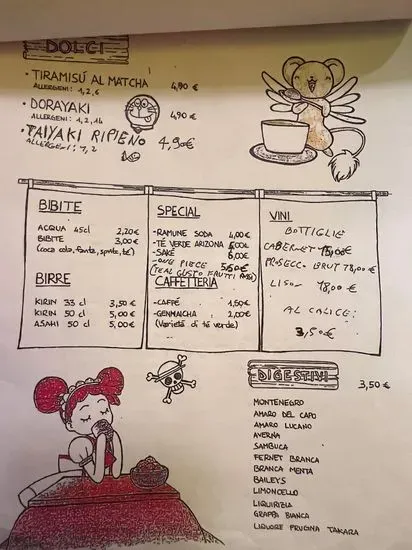 DOLCI
• TIRAMISÚ AL MATCHA 4,90 €
ALLERGENI: 1,2,6
• DORAYAKI 4,90 €
ALLERGENI: 1,2,14
• TAIYAKI RIPIENO 4,90€
ALLERGENI: 1,2
BIBITE
ACQUA 45cl 2,20€
BIBITE 3,00€
(coca cola, fanta, sprite, té)
BIRRE
KIRIN 33 cl 3,50 €
KIRIN 50 cl 5,00 €
ASAHI 50 cl 5,00€
SPECIAL
-RAMUNE SODA 4,00€
-TÉ VERDE ARIZONA 5,00€
-SAKÉ 6,00€
-ONE PIECE 5,50€
(TE AL GUSTO FRUTTI ROSSI)
CAFFETTERIA
-CAFFÉ 1,50€
-GENMAICHA 2,00€
(Varietà di té verde)
VINI
BOTTIGLIE
CABERNET 15,00€
PROSECCO BRUT 18,00€
18,00€
AL CALICE:
3,50€
DIGESTIVI 3,50 €
MONTENEGRO
AMARO DEL CAPO
AMARO LUCANO
AVERNA
SAMBUCA
FERNET BRANCA
BRANCA MENTA
BAILEYS
LIMONCELLO
LIQUIRIZIA
GRAPPA BIANCA
LIQUORE PRUGNA TAKARA